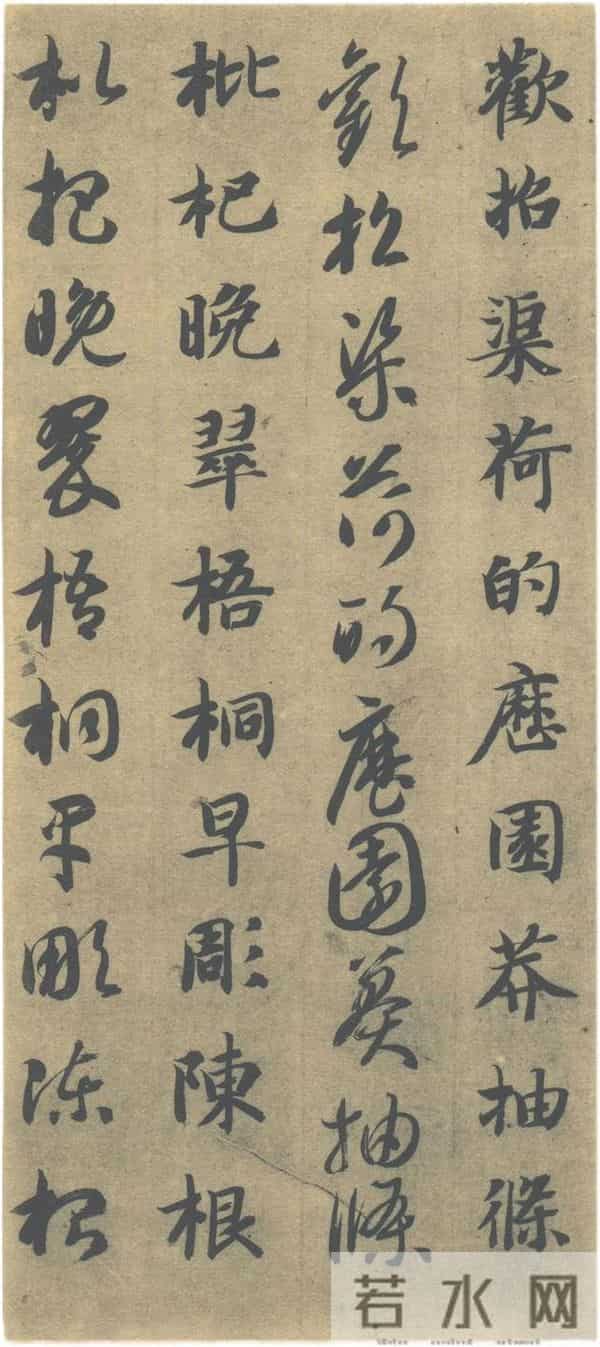 歡招渠荷的歷園莽抽條
歡招渠荷的歷園莽抽條
枇杷晚翠梧桐早彫陳根
枇杷晚翠梧桐早彫陳根
若水网